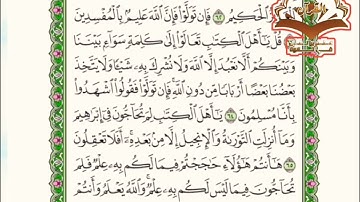 ٱلْحَكِيمُ ٦٢ فَإِن تَوَلَّوْا۟ فَإِنَّ ٱللَّهَ عَلِيمٌۢ بِٱلْمُفْسِدِينَ
٦٣ قُلْ يَٰٓأَهْلَ ٱلْكِتَٰبِ تَعَالَوْا۟ إِلَىٰ كَلِمَةٍ سَوَآءٍۭ بَيْنَنَا
وَبَيْنَكُمْ أَلَّا نَعْبُدَ إِلَّا ٱللَّهَ وَلَا نُشْرِكَ بِهِۦ شَيْـًٔا وَلَا يَتَّخِذَ
بَعْضُنَا بَعْضًا أَرْبَابًا مِّن دُونِ ٱللَّهِ ۚ فَإِن تَوَلَّوْا۟ فَقُولُوا۟ ٱشْهَدُوا۟
بِأَنَّا مُسْلِمُونَ ٦٤ يَٰٓأَهْلَ ٱلْكِتَٰبِ لِمَ تُحَآجُّونَ فِىٓ إِبْرَٰهِيمَ
وَمَآ أُنزِلَتِ ٱلتَّوْرَىٰةُ وَٱلْإِنجِيلُ إِلَّا مِنۢ بَعْدِهِۦٓ ۚ أَفَلَا تَعْقِلُونَ
٦٥ هَٰٓأَنتُمْ هَٰٓؤُلَآءِ حَٰجَجْتُمْ فِيمَا لَكُم بِهِۦ عِلْمٌ فَلِمَ
تُحَآجُّونَ فِيمَا لَيْسَ لَكُم بِهِۦ عِلْمٌ ۚ وَٱللَّهُ يَعْلَمُ وَأَنتُمْ